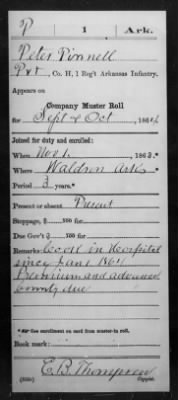 P 1 Ark.
Peter Pinnell
Pvt, Co. H, 1 Reg't Arkansas Infantry.
Appears on
Company Muster Roll
for Sept & Oct, 1864.
Joined for duty and enrolled:
When Nov 1, 1863.*
Where Waldron Ark
Period 3 years.*
Present or absent Present
Stoppage, $ 100 for
Due Gov't $ 100 for
Remarks: Cook in Hospital
since June 1864
Premium and advance
bounty due
*See enrollment on card from muster-in roll.
Book mark:
E. B. Thompson
(358) Copyist.